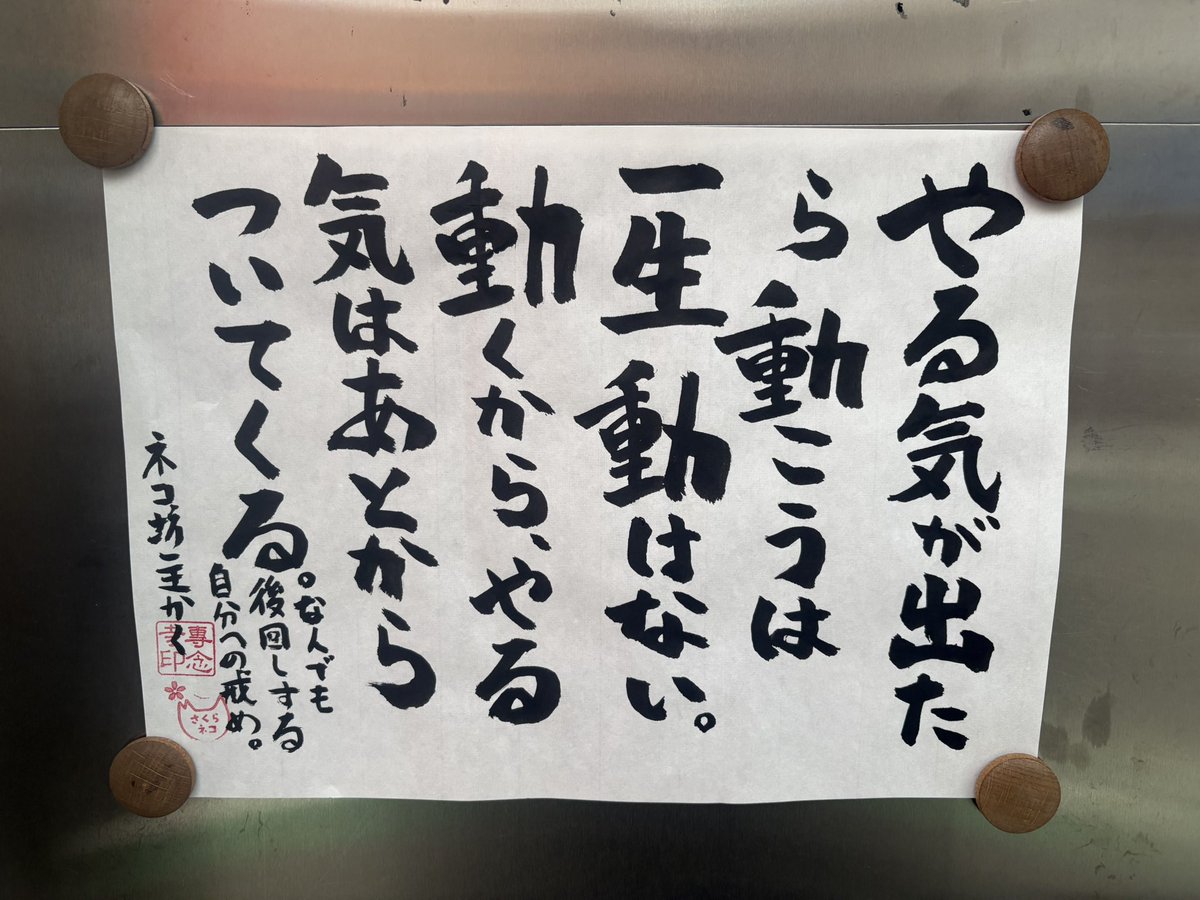 やる気が出た
ら動こうは
一生動けない。
動くから、やる
気はあとから
ついてくる。
なんでも
後回しする
自分への戒め。
ネコ坊主かく
專念
寺印
さくら
ネコ